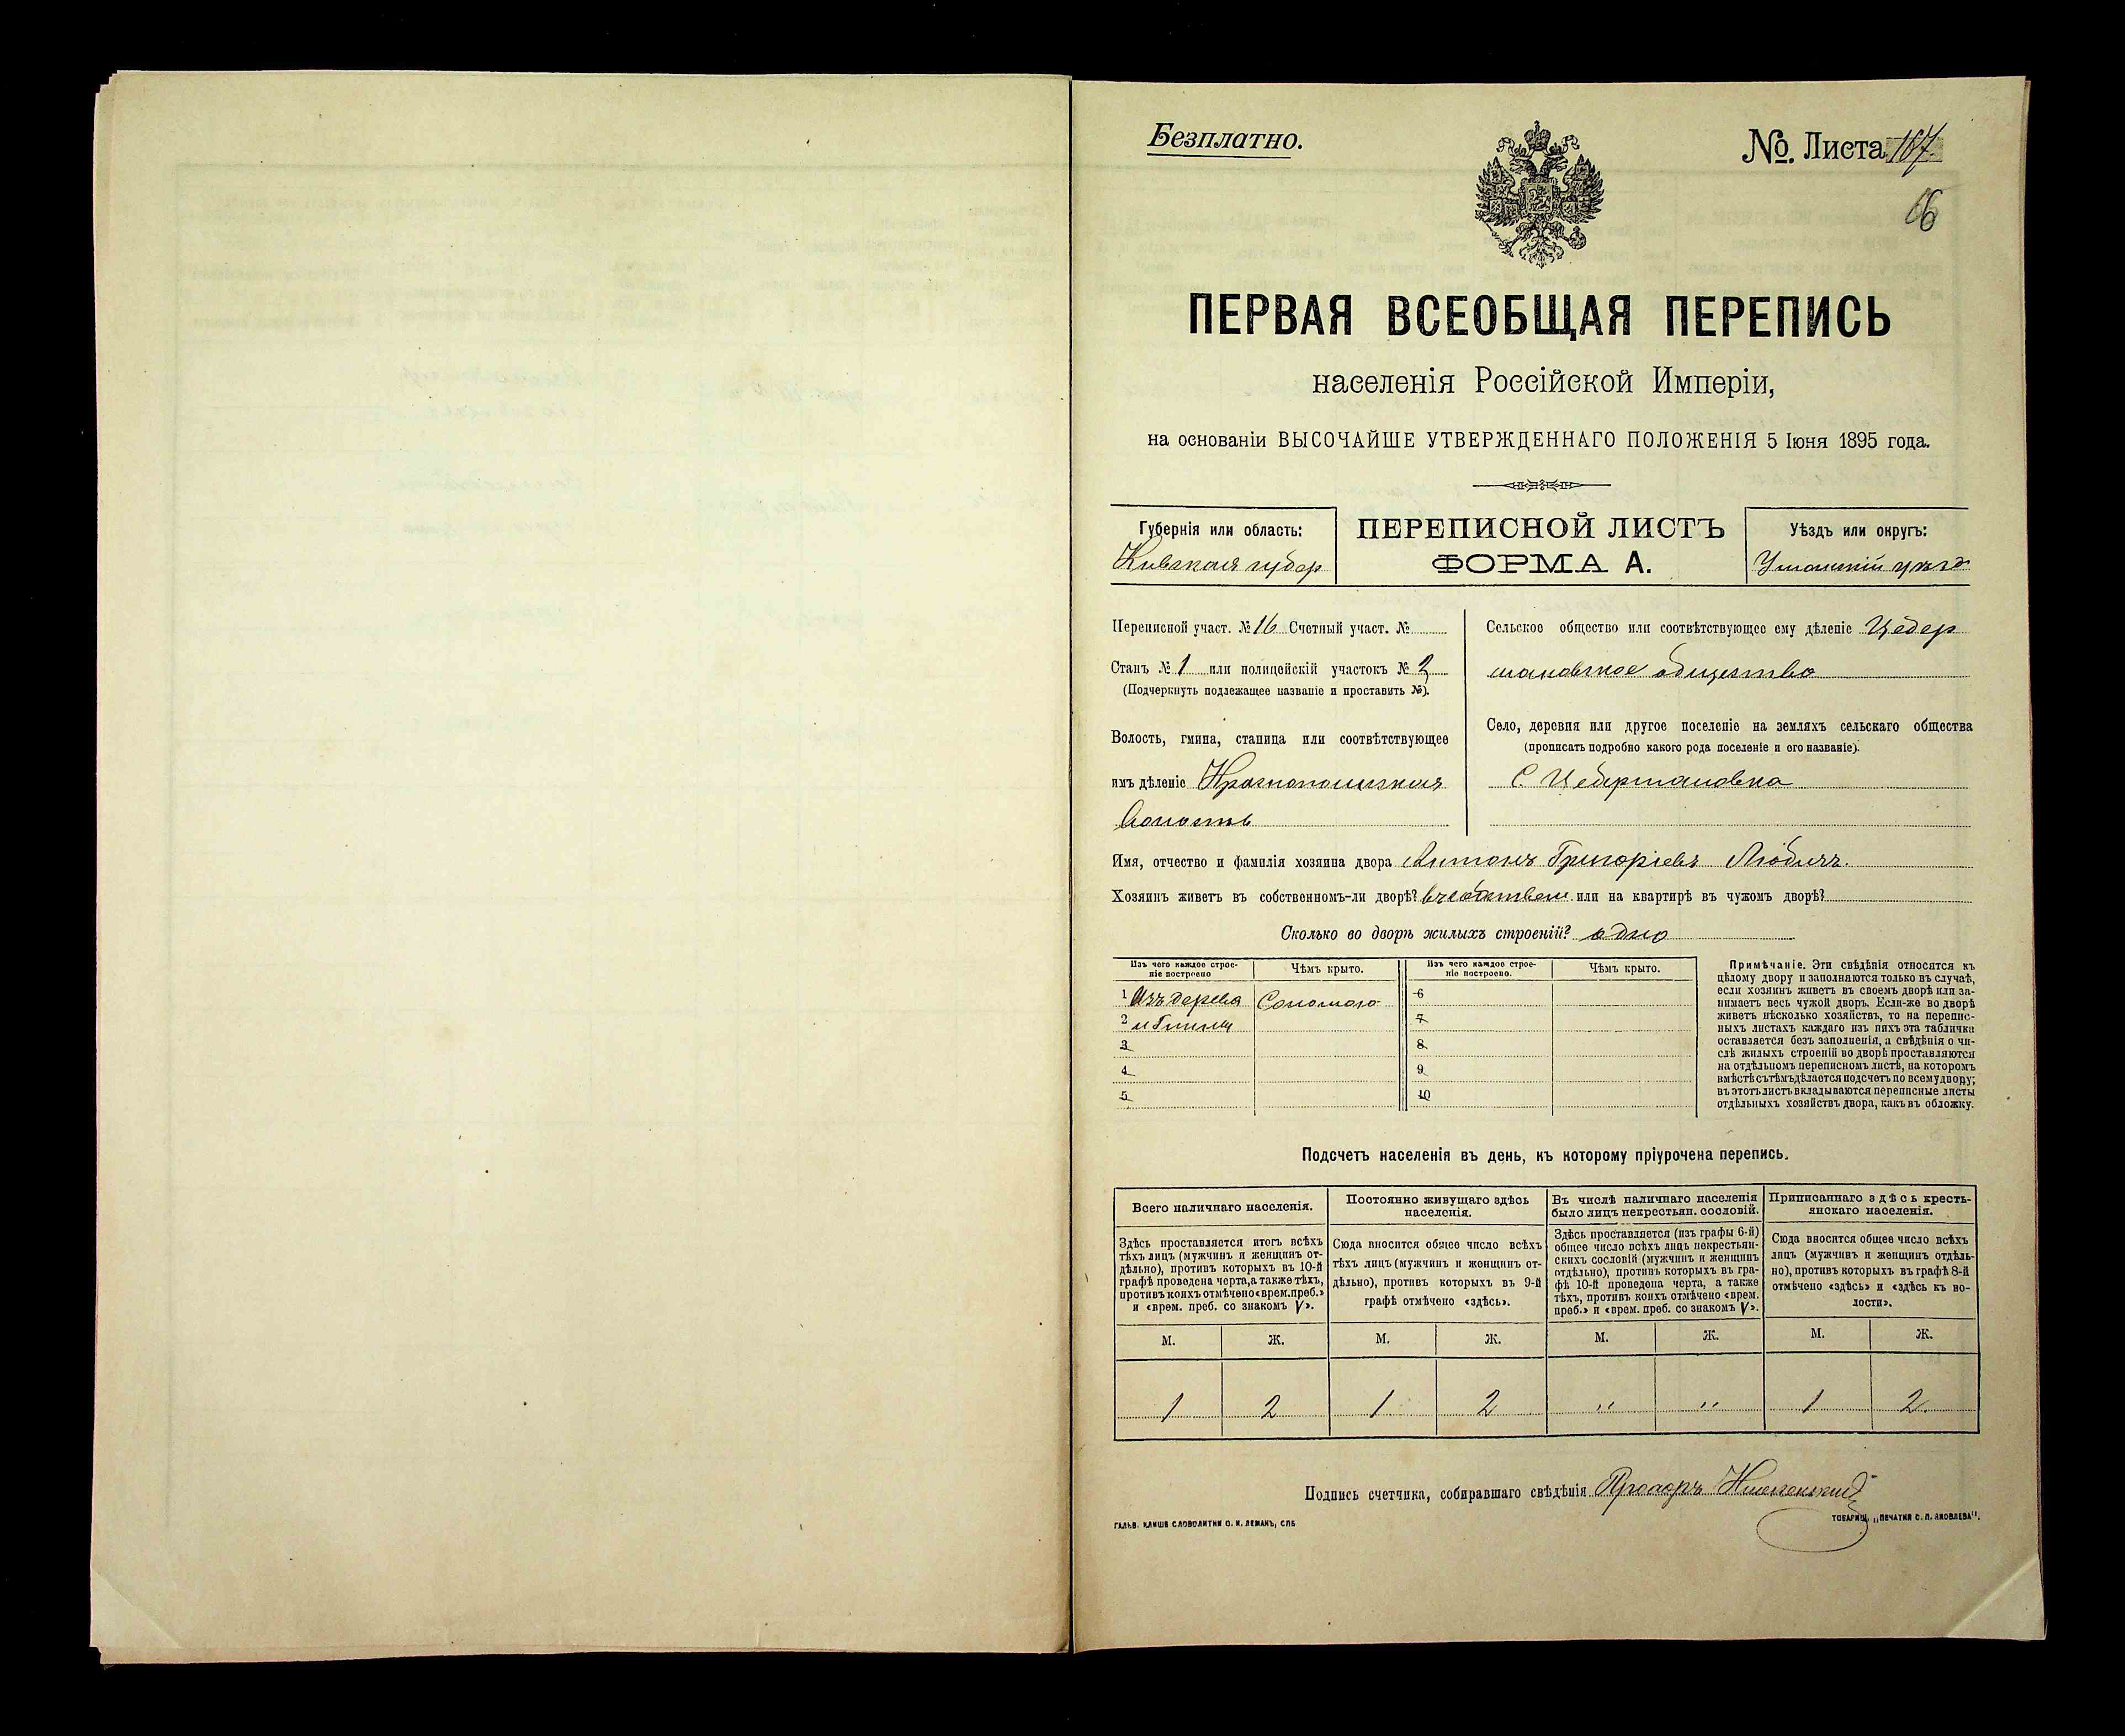 Безплатно.
№ Листа 167
66
ПЕРВАЯ ВСЕОБЩАЯ ПЕРЕПИСЬ
населенія Россійской Имперіи,
на основаніи ВЫСОЧАЙШЕ УТВЕРЖДЕННАГО ПОЛОЖЕНІЯ 5 Іюня 1895 года.
Губернія или область:
Киевская губер
ПЕРЕПИСНОЙ ЛИСТЪ
ФОРМА А.
Уѣздъ или округъ:
Уманскій уѣзд
Переписной участ. № 16 Счетный участ. №
Станъ № 1 или полицейскій участокъ № 2
(Подчеркнуть подлежащее названіе и проставить №).
Волость, гмина, станица или соотвѣтствующее
имъ дѣленіе Краснопольская
Волость
Сельское общество или соотвѣтствующее ему дѣленіе Цебер
мановское общество
Село, деревня или другое поселеніе на земляхъ сельскаго общества
(прописать подробно какого рода поселеніе и его названіе).
С. Цебермановка
Имя, отчество и фамилія хозяина двора Антонъ Григоріевъ
Хозяинъ живетъ въ собственномъ-ли дворѣ? или на квартирѣ въ чужомъ дворѣ?
Сколько во дворѣ жилыхъ строеній? одно
Изъ чего каждое строе-
ніе построено
Чѣмъ крыто.
Изъ чего каждое строе-
ніе построено.
Чѣмъ крыто.
1 Изъ дерева Соломою 6
2 и Глины 7
3 8
4 9
5 10
Примѣчаніе. Эти свѣдѣнія относятся къ
цѣлому двору и заполняются только въ случаѣ,
если хозяинъ живетъ въ своемъ дворѣ или за-
нимаетъ весь чужой дворъ. Если-же во дворѣ
живетъ нѣсколько хозяйствъ, то на перепис-
ныхъ листахъ каждаго изъ нихъ эта табличка
оставляется безъ заполненія, а свѣдѣнія о чи-
слѣ жилыхъ строеній во дворѣ проставляются
на отдѣльномъ переписномъ листѣ, на которомъ
вмѣстѣ съ тѣмъ дѣлается подсчетъ по всему двору;
въ этотъ листъ вкладываются переписные листы
отдѣльныхъ хозяйствъ двора, какъ въ обложку.
Подсчетъ населенія въ день, къ которому пріурочена перепись.
Всего наличнаго населенія.
Постоянно живущаго здѣсь
населенія.
Въ числѣ наличнаго населенія
было лицъ некрестьян. сословій.
Приписаннаго здѣсь кресть-
янскаго населенія.
Здѣсь проставляется итогъ всѣхъ
тѣхъ лицъ (мужчинъ и женщинъ от-
дѣльно), противъ которыхъ въ 10-й
графѣ проведена черта, а также тѣхъ,
противъ коихъ отмѣчено «врем. преб.»
и «врем. преб. со знакомъ V».
Сюда вносится общее число всѣхъ
тѣхъ лицъ (мужчинъ и женщинъ от-
дѣльно), противъ которыхъ въ 9-й
графѣ отмѣчено «здѣсь».
Здѣсь проставляется (изъ графы 6-й)
общее число всѣхъ лицъ некрестьян-
скихъ сословій (мужчинъ и женщинъ
отдѣльно), противъ которыхъ въ гра-
фѣ 10-й проведена черта, а также
тѣхъ, противъ коихъ отмѣчено «врем.
преб.» и «врем. преб. со знакомъ V».
Сюда вносится общее число всѣхъ
лицъ (мужчинъ и женщинъ отдѣль-
но), противъ которыхъ въ графѣ 8-й
отмѣчено «здѣсь» и «здѣсь къ во-
лости».
М. Ж. М. Ж. М. Ж. М. Ж.
1 2 1 2 " " 1 2.
Подпись счетчика, собиравшаго свѣдѣнія Прохоръ
ГАЛЬВ. КЛИШЕ СЛОВОЛИТНИ О. И. ЛЕМАНЪ, СПБ
ТОВАРИЩ. „ПЕЧАТНЯ С. П. ЯКОВЛЕВА".